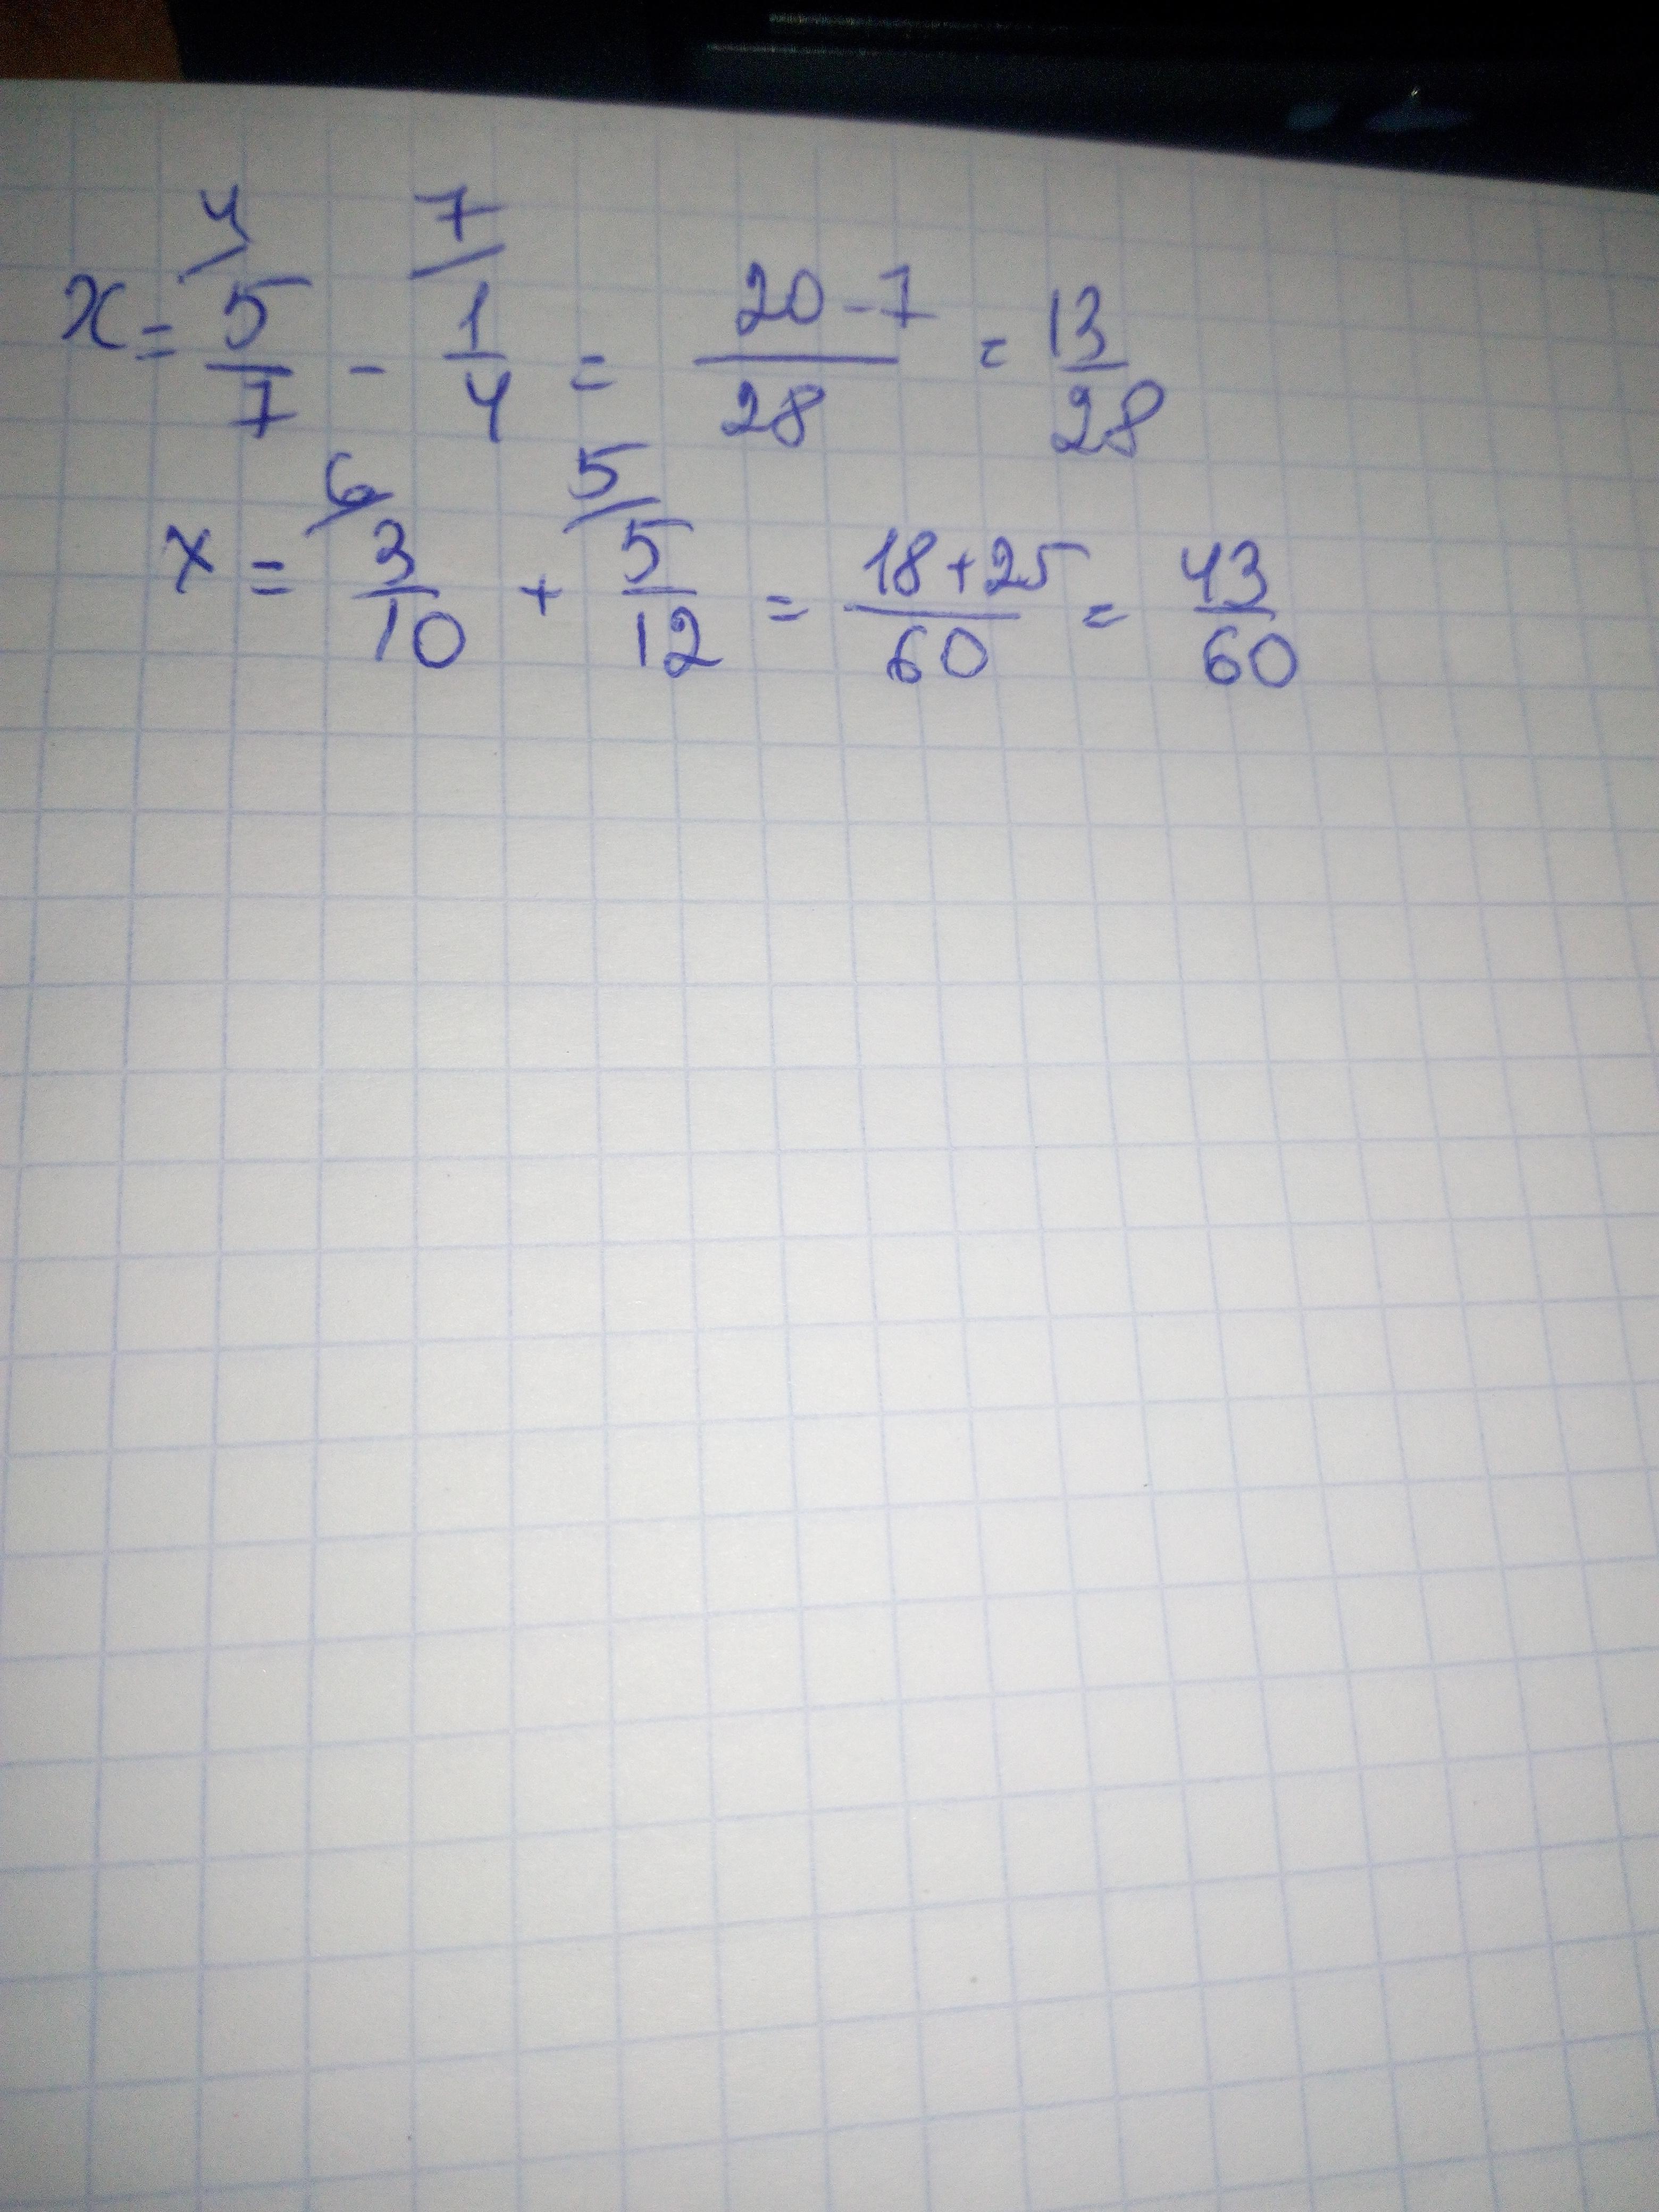 x = 4/ 5/7 - 7/ 1/4 = 20-7/28 = 13/28
x = 6/ 3/10 + 5/ 5/12 = 18+25/60 = 43/60